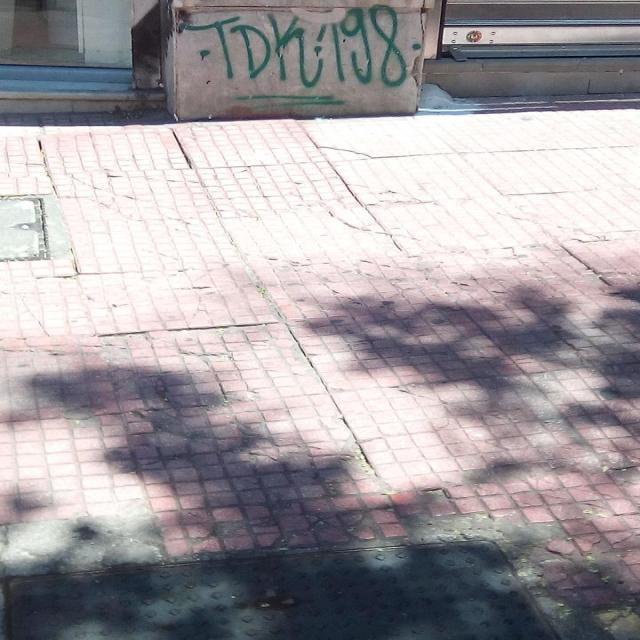 ·TDK:198·